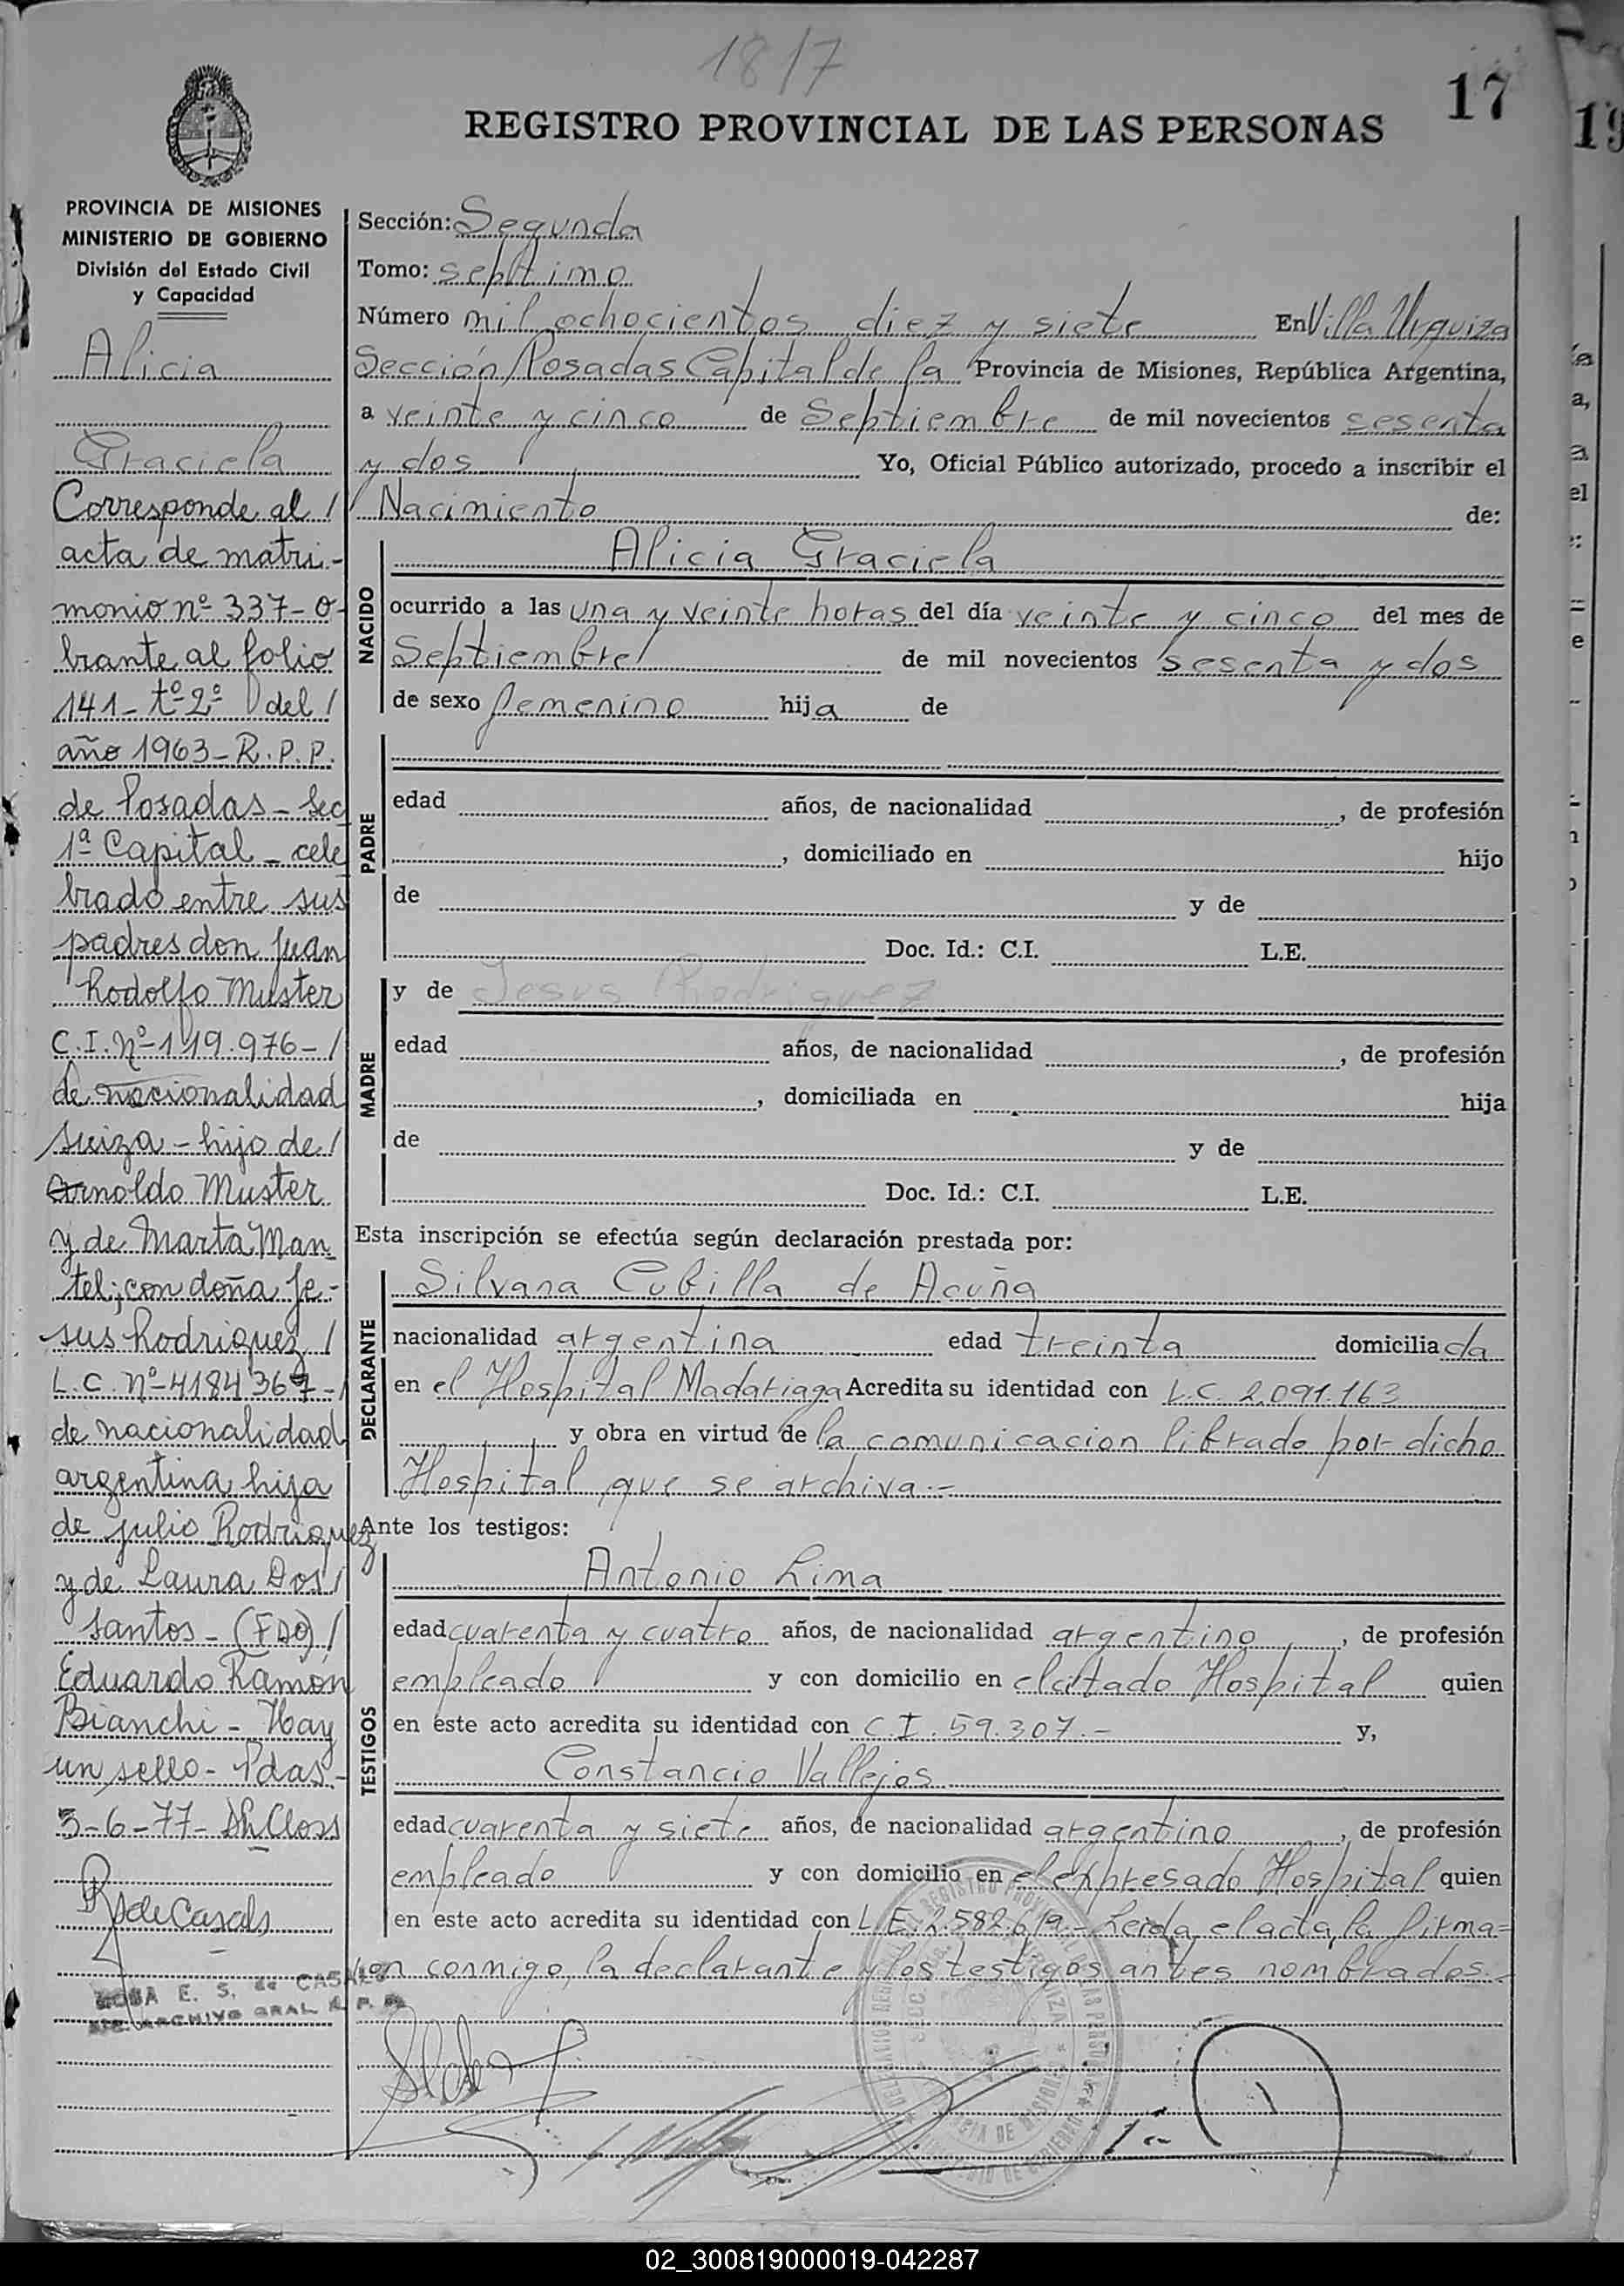 1817
17
REGISTRO PROVINCIAL DE LAS PERSONAS
PROVINCIA DE MISIONES
MINISTERIO DE GOBIERNO
División del Estado Civil
y Capacidad
Alicia
Graciela
Corresponde al /
acta de matri-
monio nº 337-o-
brante al folio
141- tº 2º del /
año 1963- R.P.P.
de Posadas - Sec
1ª Capital - cele
brado entre sus
padres don Juan
Rodolfo Muster
C.I. Nº 119.976- /
de nacionalidad
suiza - hijo de /
Arnoldo Muster
y de Marta Man-
tel; con doña Je-
sus Rodriguez /
L.C. Nº 4184367-
de nacionalidad
argentina hija
de Julio Rodriguez
y de Laura Dos /
Santos - (FDO) /
Eduardo Ramón
Bianchi - Hay
un sello - Pdas -
3-6-77-
R de Casals
ROSA E. S. de CASALS
ARCHIVO GRAL R. P. P.
Sección: Segunda
Tomo: septimo
Número mil ochocientos diez y siete En Villa Urquiza
Sección Posadas Capital de la Provincia de Misiones, República Argentina,
a veinte y cinco de Septiembre de mil novecientos sesenta
y dos Yo, Oficial Público autorizado, procedo a inscribir el
Nacimiento de:
NACIDO
Alicia Graciela
ocurrido a las una y veinte horas del día veinte y cinco del mes de
Septiembre de mil novecientos sesenta y dos
de sexo femenino hija de
PADRE
edad años, de nacionalidad , de profesión
, domiciliado en hijo
de y de
Doc. Id.: C.I. L.E.
MADRE
y de Jesus Rodriguez
edad años, de nacionalidad , de profesión
, domiciliada en hija
de y de
Doc. Id.: C.I. L.E.
Esta inscripción se efectúa según declaración prestada por:
DECLARANTE
Silvana Cubilla de Acuña
nacionalidad argentina edad treinta domiciliada
en el Hospital Madariaga Acredita su identidad con L.C. 2.091.163
y obra en virtud de la comunicacion librado por dicho
Hospital que se archiva.-
Ante los testigos:
TESTIGOS
Antonio Lima
edad cuarenta y cuatro años, de nacionalidad argentino, de profesión
empleado y con domicilio en el citado Hospital quien
en este acto acredita su identidad con C.I. 59.307.- y,
Constancio Vallejos
edad cuarenta y siete años, de nacionalidad argentino, de profesión
empleado y con domicilio en el expresado Hospital quien
en este acto acredita su identidad con L.E. Leida el acta, la firma=
ron conmigo, la declarante y los testigos antes nombrados.-
02_300819000019-042287